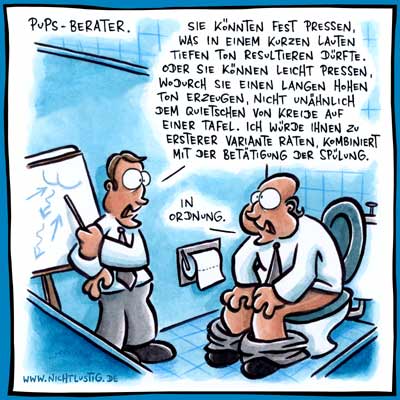 PUPS-BERATER.
SIE KÖNNTEN FEST PRESSEN,
WAS IN EINEM KURZEN LAUTEN
TIEFEN TON RESULTIEREN DÜRFTE.
ODER SIE KÖNNEN LEICHT PRESSEN,
WODURCH SIE EINEN LANGEN HOHEN
TON ERZEUGEN, NICHT UNÄHNLICH
DEM QUIETSCHEN VON KREIDE AUF
EINER TAFEL. ICH WÜRDE IHNEN ZU
ERSTERER VARIANTE RATEN, KOMBINIERT
MIT DER BETÄTIGUNG DER SPÜLUNG.
IN
ORDNUNG.
WWW.NICHTLUSTIG.DE